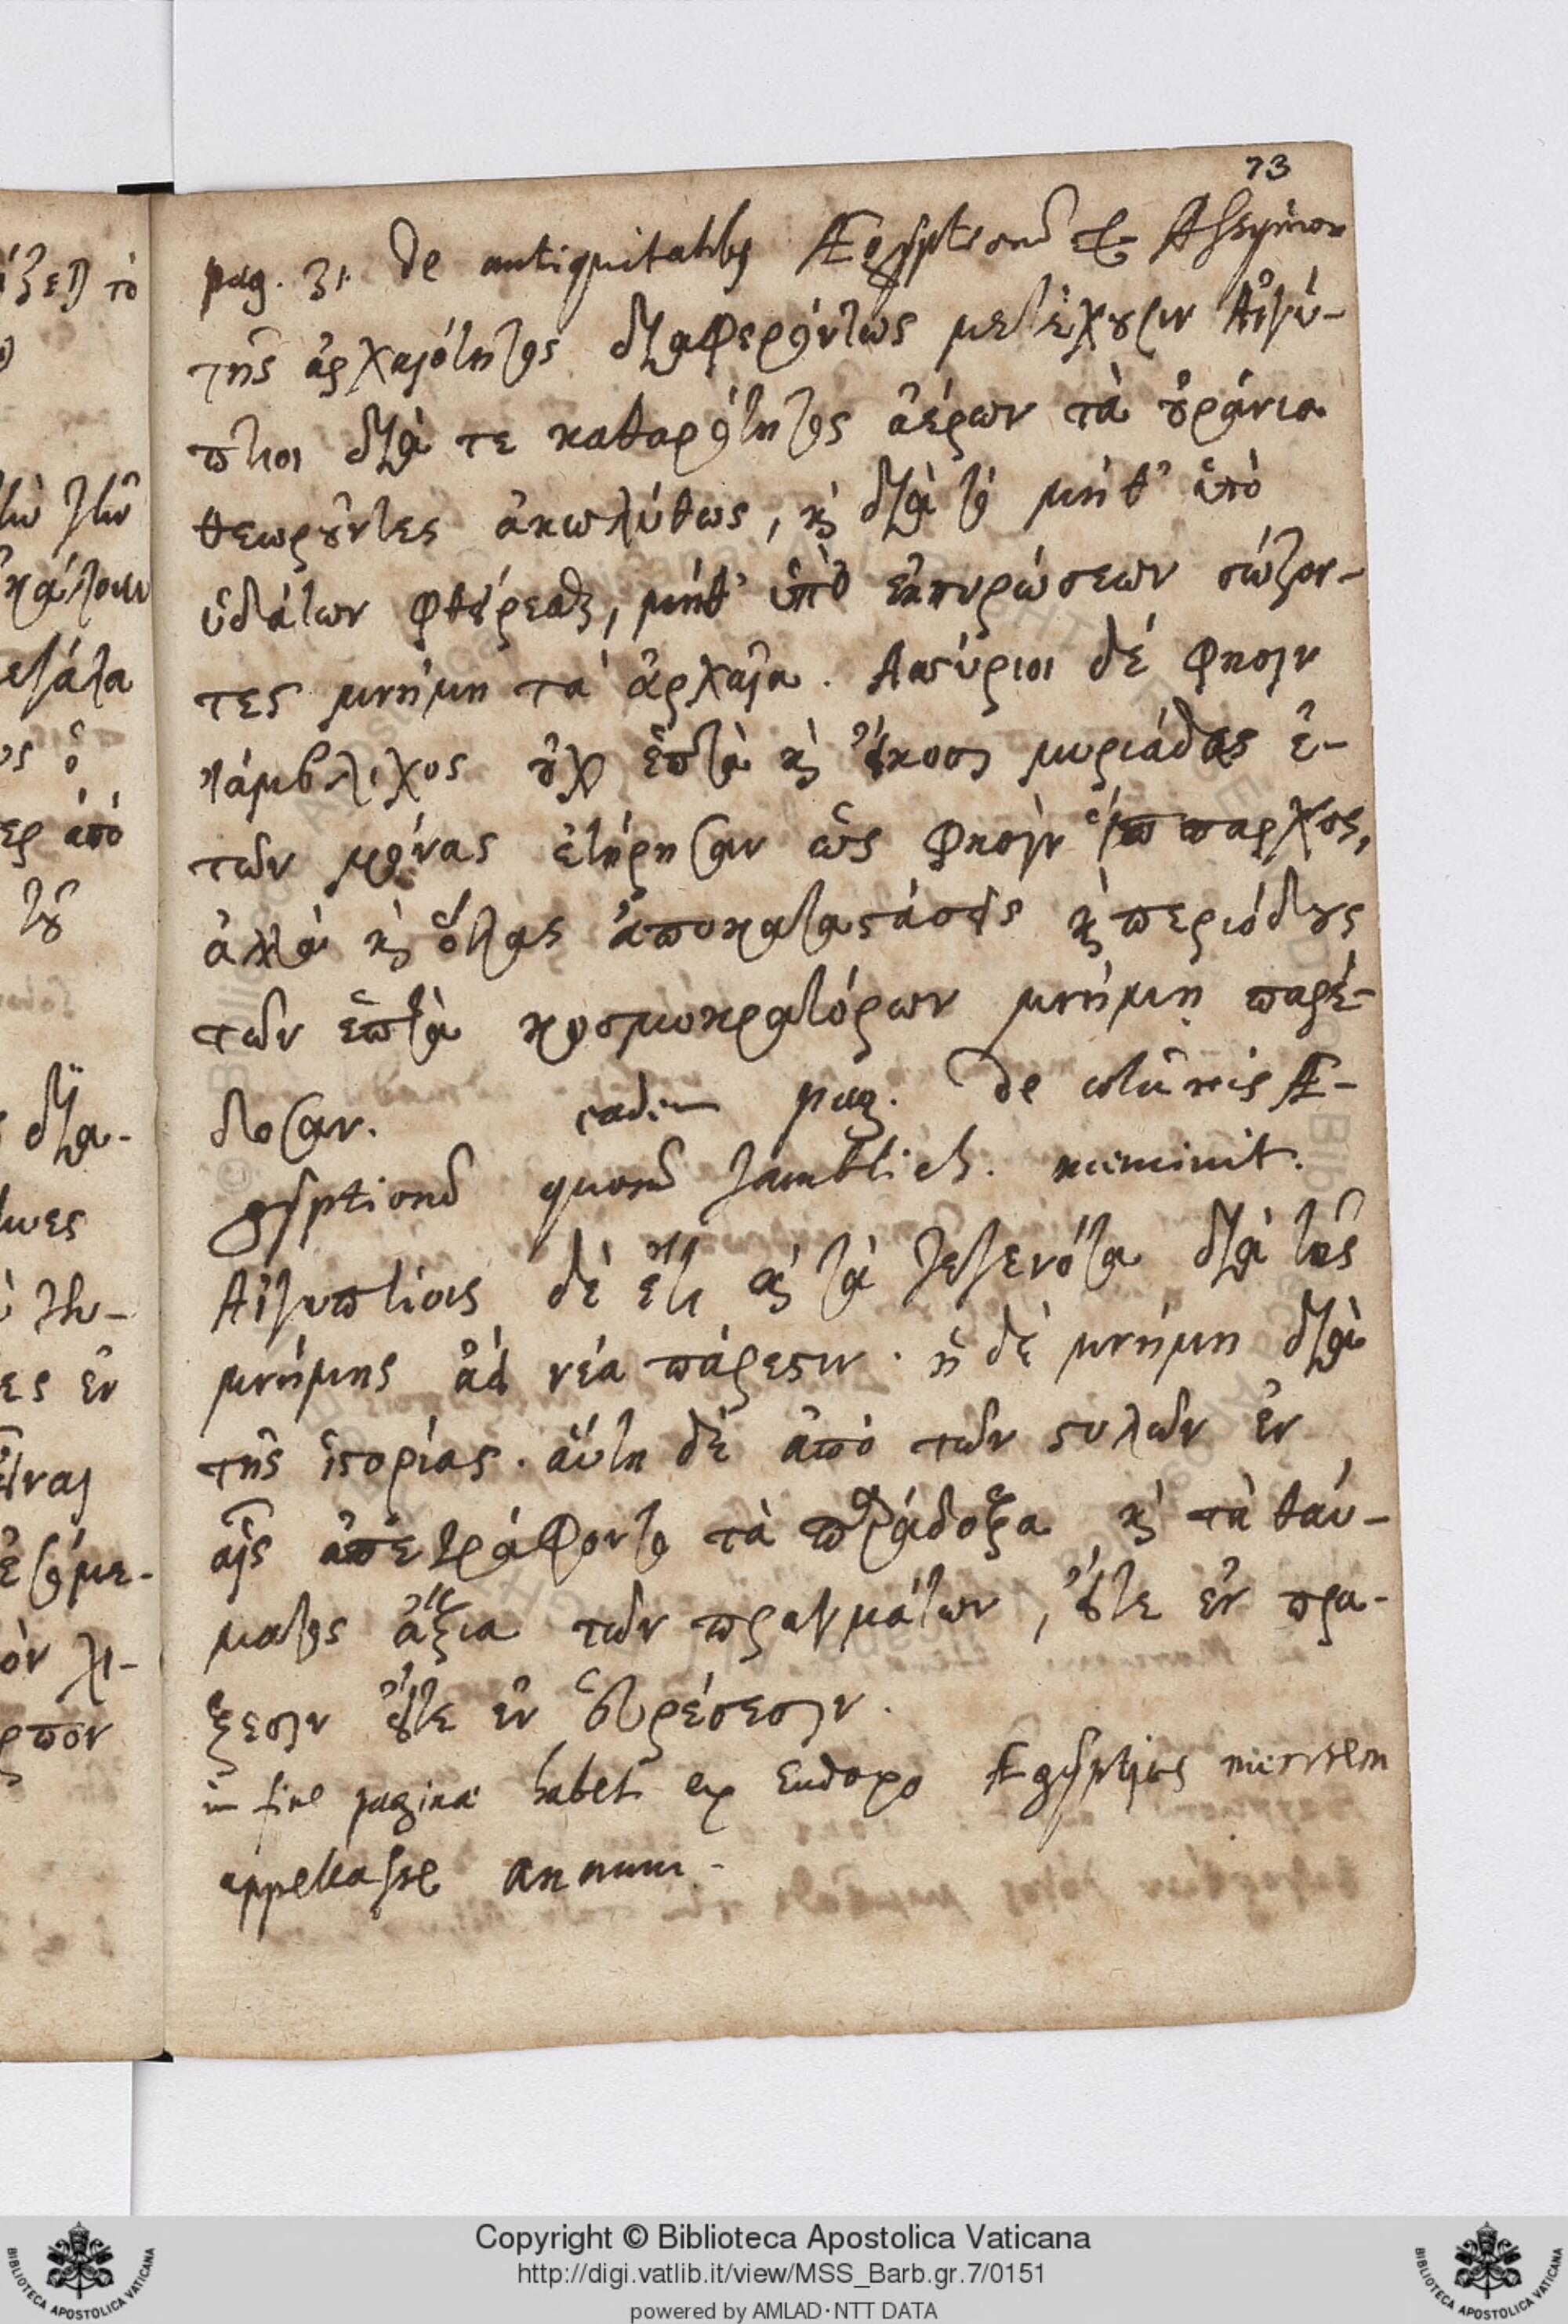 73
pag. 31. De antiquitatibus Ægyptiorum & Assyrior
τῆς ἀρχαιότητος διαφερόντως μετέχουσιν Αἰγύ-
πτιοι διά τε καθαρότητος ἀέρων τὰ οὐράνια
θεωροῦντες ἀκωλύτως, καὶ διὰ τὸ μήθ' ὑπὸ
ὑδάτων φθείρεσθαι, μήθ' ὑπὸ ἐκπυρώσεων σώζον-
τες μνήμη τὰ ἀρχαῖα. Ἀσσύριοι δέ φησιν
Ἰάμβλιχος οὐχ ἑπτὰ καὶ εἴκοσι μυριάδας ἐ-
τῶν μόνας ἐτήρησαν ὥς φησιν Ἵππαρχος,
ἀλλὰ καὶ ὅλας ἀποκαταστάσεις καὶ περιόδους
τῶν ἑπτὰ κοσμοκρατόρων μνήμῃ παρέ-
δοσαν. eadem pag. De columnis Æ-
gyptiorum quorum Iamblich. meminit.
Αἰγυπτίοις δὲ ἔτι καὶ τὰ γεγενότα διὰ τῆς
μνήμης ἀεὶ νέα πάρεστιν. ἡ δὲ μνήμη διὰ
τῆς ἱστορίας. αὕτη δὲ ἀπὸ τῶν στηλῶν ἐν
αἷς ἀπεγράφοντο τὰ παράδοξα καὶ τὰ θαύ-
ματος ἄξια τῶν πραγμάτων, εἴτε ἐν πρά-
ξεσιν εἴτε ἐν εὑρέσεσιν.
in fine paginæ habet ex Eudoxo Ægyptios mensem
appellasse annum.
είναι
ὁ
ἀπὸ
τοῦ
δια-
ἐν
Copyright © Biblioteca Apostolica Vaticana
http://digi.vatlib.it/view/MSS_Barb.gr.7/0151
powered by AMLAD·NTT DATA
BIBLIOTECA APOSTOLICA VATICANA
BIBLIOTECA APOSTOLICA VATICANA